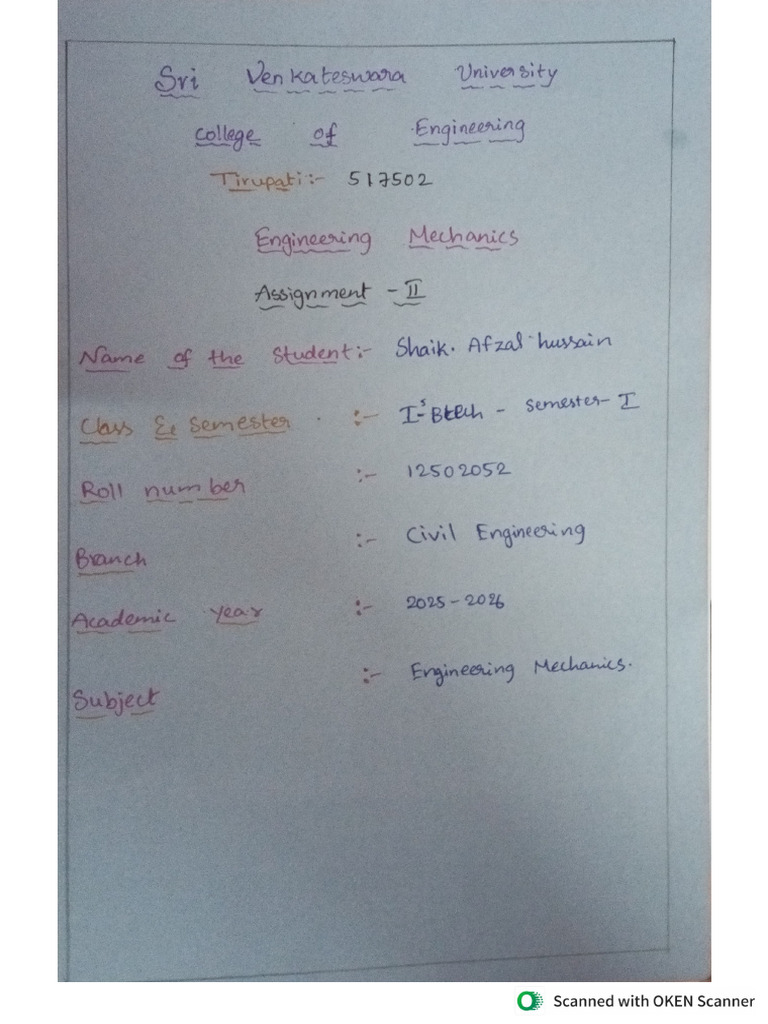 Sri Venkateswara University
College of Engineering
Tirupati:- 517502
Engineering Mechanics
Assignment - II
Name of the Student:- Shaik. Afzal hussain
Class & Semester :- I Btech - Semester- I
Roll number :- 12502052
Branch :- Civil Engineering
Academic Year :- 2025-2026
Subject :- Engineering Mechanics.
Scanned with OKEN Scanner